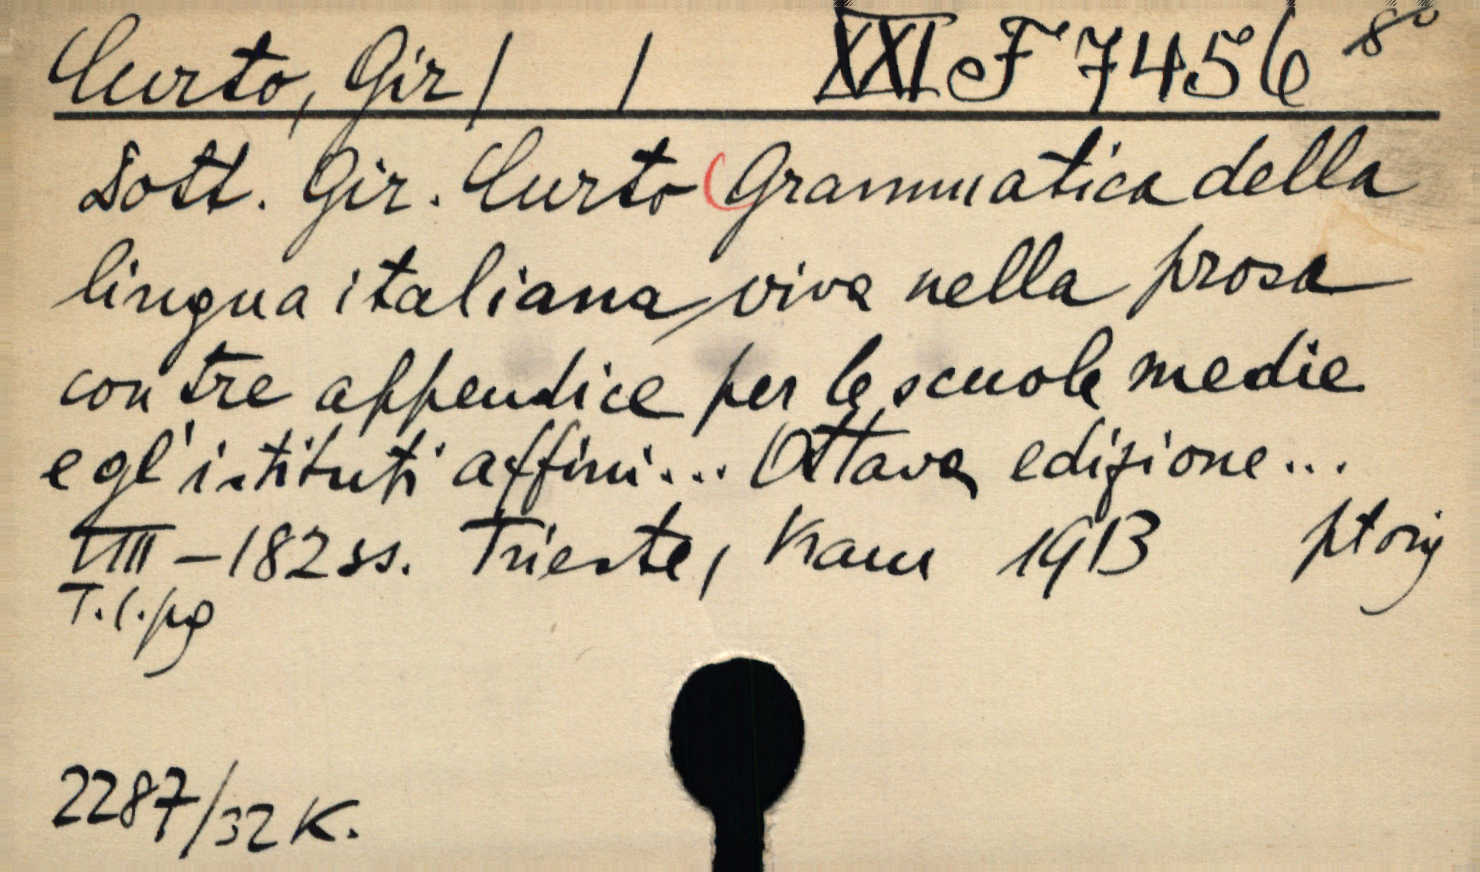 Curto, Gir / / XXI e F 7456 8°
Dott. Gir. Curto (Grammatica della
lingua italiana viva nella prosa
con tre appendice per le scuole medie
e gl'istituti affini... Ottava edizione...
VIII-182 ss. Trieste, 1913 pt orig
T.l.pg
2287/32 K.